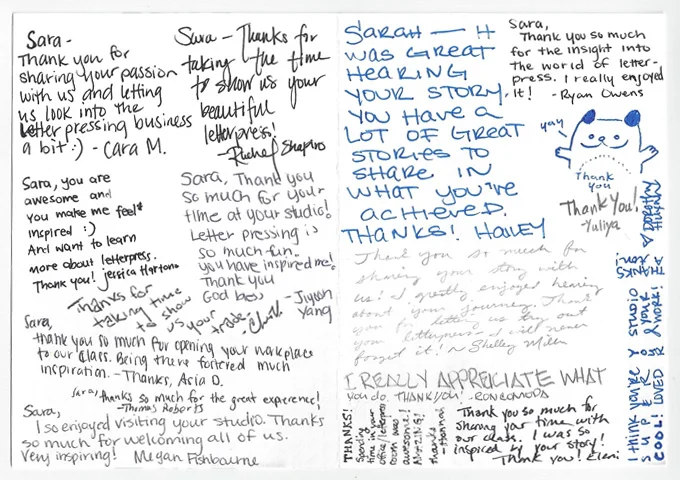 Sara -
Thank you for
sharing your passion
with us and letting
us look into the
letter pressing business
a bit :) - Cara M.
Sara - Thanks for
taking the time
to show us your
beautiful
letterpress!
- Rachel Shapiro
Sara, you are
awesome and
you make me feel
inspired :)
And want to learn
more about letterpress.
Thank you! Jessica
Sara, Thank you
so much for your
time at your studio!
Letter pressing is
so much fun.
you have inspired me!
Thank you
God bless
- Jiyoon
Yang
Thanks for
taking time
to show
us your
trade.
Sara,
thank you so much for opening your workplace
to our class. Being there fostered much
inspiration. - Thanks, Asia D.
Sara, thanks so much for the great experience!
- Thomas Roberts
Sara,
I so enjoyed visiting your studio. Thanks
so much for welcoming all of us.
Very inspiring! Megan Fishbourne
SARAH - It
WAS GREAT
HEARING
YOUR STORY.
YOU HAVE A
LOT OF GREAT
STORIES TO
SHARE IN
WHAT YOU'VE
ACHIEVED.
THANKS! HAILEY
Sara,
Thank you so much
for the insight into
the world of letter-
press. I really enjoyed
it! - Ryan Owens
yay
Thank
you
Thank You!
- Yuliya
Thank you so much for
sharing your story with
us! I greatly enjoyed hearing
about your journey. Thank
you for letting us try out
your letterpress - I will never
forget it! ~ Shelley Miller
I REALLY APPRECIATE WHAT
you do. THANK YOU!
THANKS!
Spending
time in your
office/letterpress
room was
awesome!
AMAZING!
thanks
- Hannah
Thank you so much for
sharing your time with
our class. I was so
inspired by your story!
Thank you! Eleni
think your studio is
super
COOL! LOVED your work!